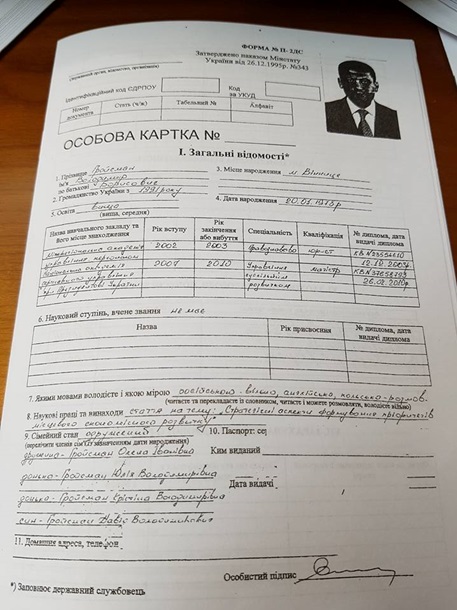 ФОРМА № П-2ДС
Затверджено наказом Мінстату
України від 26.12.1995р. №343
(найменування органу, відомство, організація)
Ідентифікаційний код ЄДРПОУ
Код
за УКУД
Номер документа Стать (ч/ж) Табельний № Алфавіт
ОСОБОВА КАРТКА №
I. Загальні відомості*
1. Прізвище Гройсман
Ім'я Володимир
по батькові Борисович
3. Місце народження м. Вінниця
2. Громадянство України з 1991 року
4. Дата народження 20.01.1978р
5. Освіта вища
(вища, середня)
Назва навчального закладу та його місце знаходження Рік вступу Рік закінчення або вибуття Спеціальність Кваліфікація № диплома, дата видачі диплома
Міжрегіональна академія управління персоналом 2002 2003 Правознавство юрист
академія державного управління при Президентові України 2007 2010 Управління суспільним розвитком магістр
6. Науковий ступінь, вчене звання не має
Назва Рік присвоєння № диплома, дата видачі диплома
7. Якими мовами володієте і якою мірою російською - вільно, англійська, польська - розмов.
(читаєте та перекладаєте із словником, читаєте і можете розмовляти, володієте вільно)
8. Наукові праці та винаходи стаття на тему: "Стратегічні аспекти формування пріоритетів
місцевого економічного розвитку"
9. Сімейний стан одружений 10. Паспорт: сер
(перелічити членів сім'ї із зазначенням дати народження)
дружина - Гройсман Олена Іванівна Ким виданий
донька - Гройсман Юлія Володимирівна
Дата видачі
донька - Гройсман Крістіна Володимирівна
син - Гройсман Давід Володимирович
11. Домашня адреса, телефон
Особистий підпис
*) Заповнює державний службовець